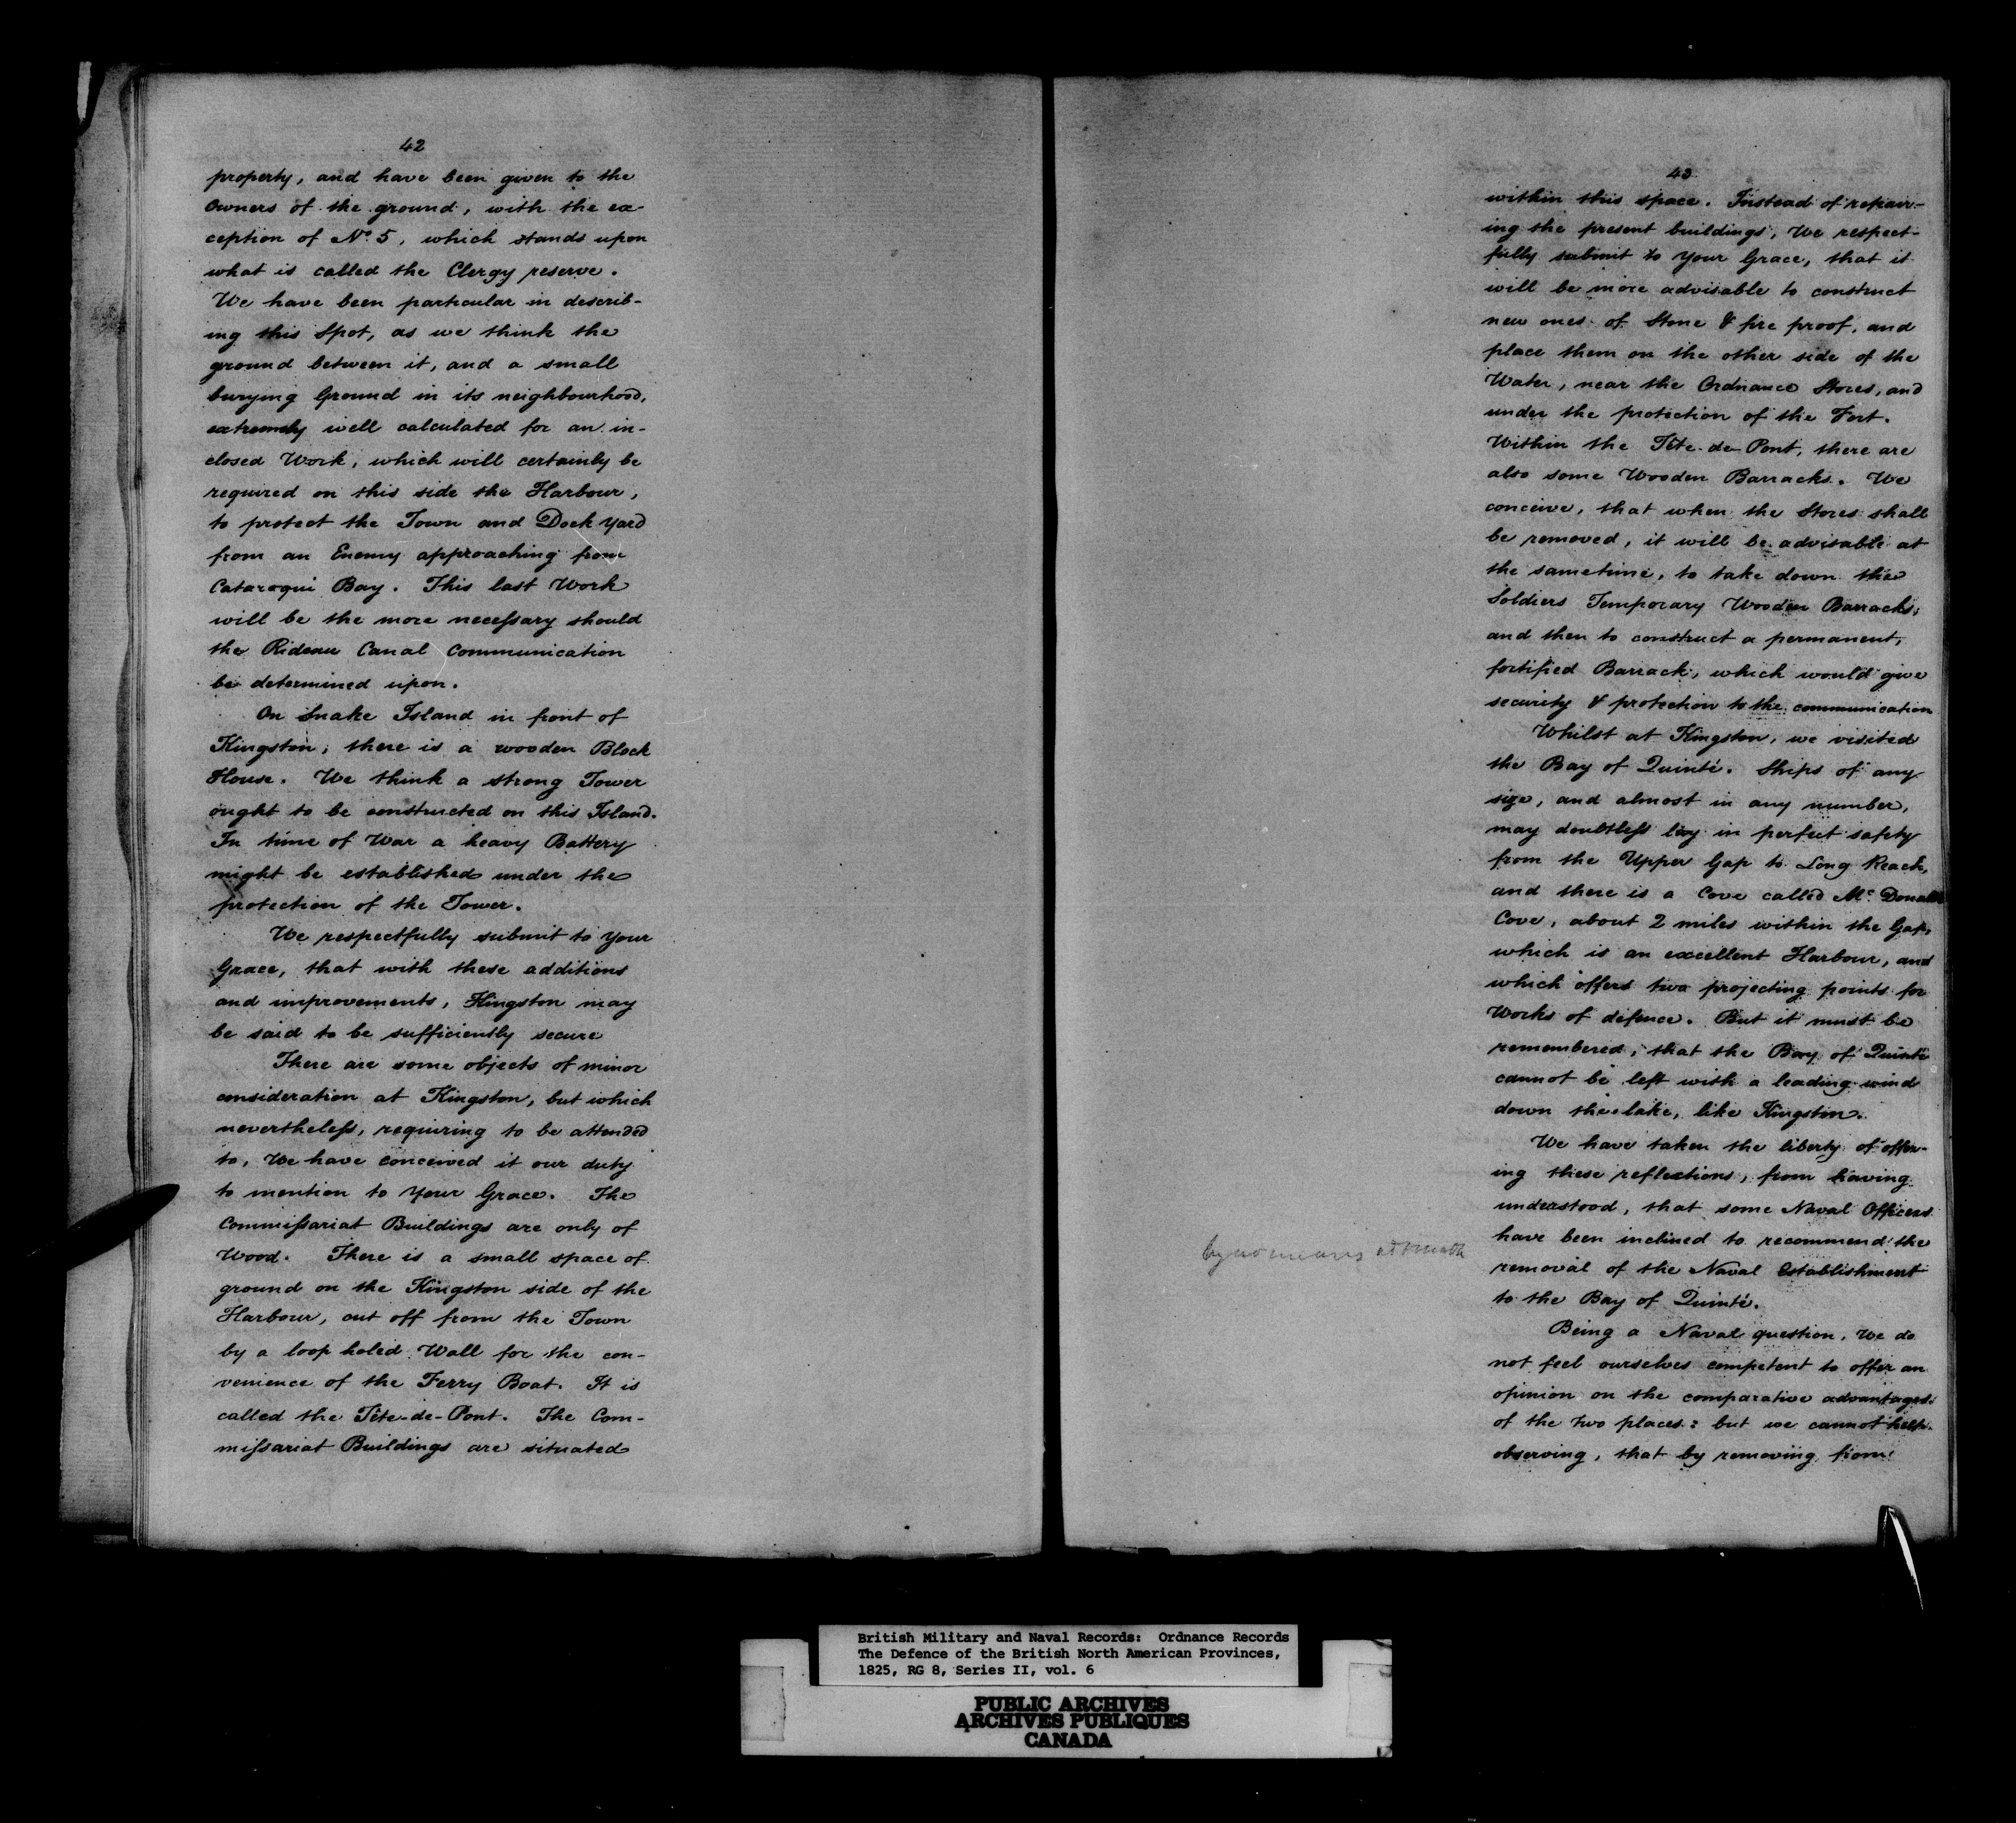 42
property, and have been given to the
Owners of the ground, with the ex-
ception of No. 5, which stands upon
what is called the Clergy reserve.
We have been particular in describ-
ing this Spot, as we think the
ground between it, and a small
burying Ground in its neighbourhood,
extremely well calculated for an in-
closed Work, which will certainly be
required on this side the Harbour,
to protect the Town and Dock Yard
from an Enemy approaching from
Cataroqui Bay. This last Work
will be the more necessary should
the Rideau Canal Communication
be determined upon.
On Snake Island in front of
Kingston, there is a wooden Block
House. We think a strong Tower
ought to be constructed on this Island.
In time of War a heavy Battery
might be established under the
protection of the Tower.
We respectfully submit to Your
Grace, that with these additions
and improvements, Kingston may
be said to be sufficiently secure
There are some objects of minor
consideration at Kingston, but which
nevertheless, requiring to be attended
to, We have conceived it our duty
to mention to Your Grace. The
Commissariat Buildings are only of
Wood. There is a small space of
ground on the Kingston side of the
Harbour, cut off from the Town
by a loop holed Wall for the con-
venience of the Ferry Boat. It is
called the Tête-de-Pont. The Com-
missariat Buildings are situated
43
within this space. Instead of repair-
ing the present buildings, We respect-
fully submit to Your Grace, that it
will be more advisable to construct
new ones of Stone & fire proof, and
place them on the other side of the
Water, near the Ordnance Stores, and
under the protection of the Fort.
Within the Tête-de-Pont, there are
also some Wooden Barracks. We
conceive, that when the Stores shall
be removed, it will be advisable at
the sametime, to take down the
Soldiers Temporary Wooden Barracks,
and then to construct a permanent,
fortified Barrack, which would give
security & protection to the communication
Whilst at Kingston, we visited
the Bay of Quinté. Ships of any
size, and almost in any number,
may doubtless lay in perfect safety
from the Upper Gap to Long Reach,
and there is a Cove called Mc Donalds
Cove, about 2 miles within the Gap,
which is an excellent Harbour, and
which offers two projecting points for
Works of defence. But it must be
remembered, that the Bay of Quinté
cannot be left with a leading wind
down the lake, like Kingston.
We have taken the liberty of offer-
ing these reflections, from having
understood, that some Naval Officers
have been inclined to recommend the
by no means
removal of the Naval Establishment
to the Bay of Quinté.
Being a Naval question, We do
not feel ourselves competent to offer an
opinion on the comparative advantages
of the two places: but we cannot help
observing, that by removing from
British Military and Naval Records: Ordnance Records
The Defence of the British North American Provinces,
1825, RG 8, Series II, vol. 6
PUBLIC ARCHIVES
ARCHIVES PUBLIQUES
CANADA